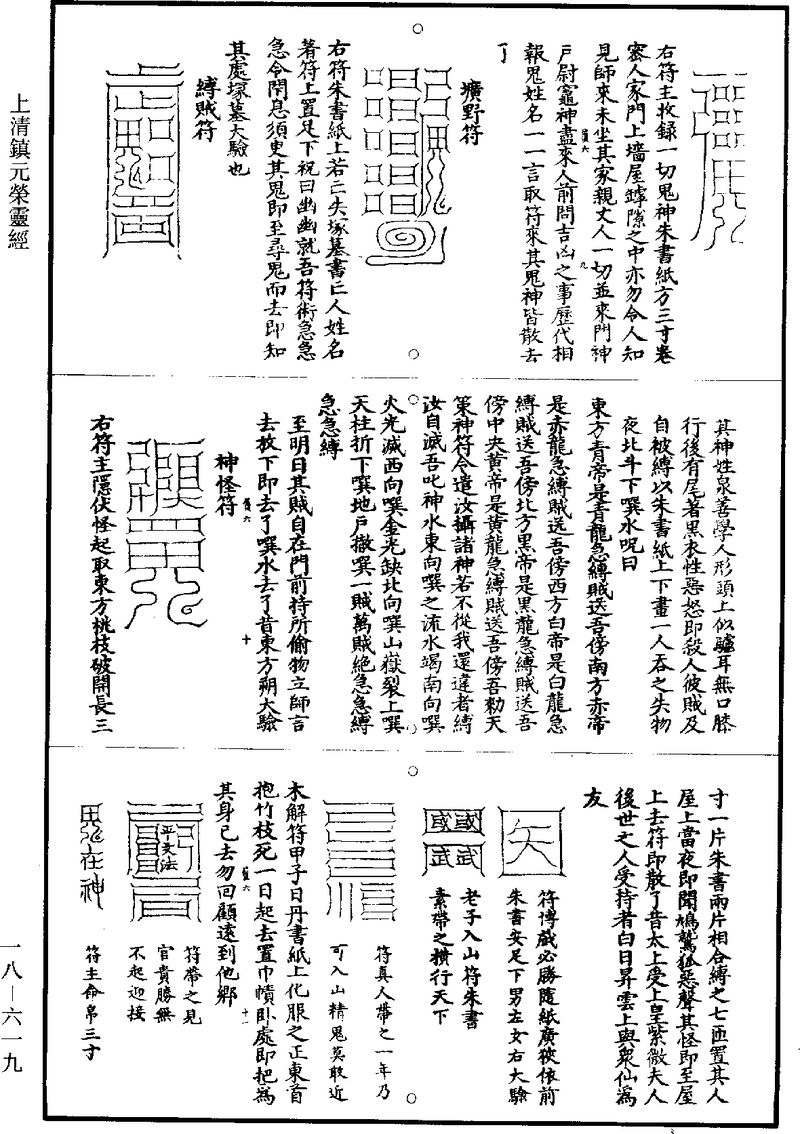 上清鎮元榮靈經
右符主收録一切鬼神朱書紙方三寸卷
密人家門上墻屋罅隙之中亦勿令人知
見師來未坐其家親丈人一切並來門神
戶尉竈神盡來人前問吉凶之事歷代相
報鬼姓名一一言取符來其鬼神皆散去
了
壙野符
右符朱書紙上若亡失塚墓書亡人姓名
著符上置足下祝曰幽幽就吾符術急急
急令閇息須史其鬼即至尋鬼而去即知
其處塚墓大驗也
縛賊符
其神姓泉善學人形頭上似驢耳無口膝
行後有尾著黑衣性惡怒即殺人彼賊及
自被縛以朱書紙上下畫一人吞之失物
夜北斗下噀水呪曰
東方青帝是青龍急縛賊送吾傍南方赤帝
是赤龍急縛賊送吾傍西方白帝是白龍急
縛賊送吾傍北方黑帝是黑龍急縛賊送吾
傍中央黄帝是黄龍急縛賊送吾傍吾勑天
策神符令遣汝攝諸神若不從我還違者縛
汝自滅吾叱神水東向噀之流水竭南向噀
火光滅西向噀金光缺北向噀山嶽裂上噀
天柱折下噀地戶撤噀一賊萬賊絶急急縛
急急縛
至明日其賊自在門前持所偷物立師言
去放下即去了噀水去了昔東方朔大驗
神怪符
右符主隱伏怪起取東方桃枝破開長三
寸一片朱書兩片相合縛之七匝置其人
屋上當夜即聞鳩鷲狐惡聲其怪即至屋
上去符即散了昔太上受上皇紫微夫人
後世之人受持者白日昇雲上與衆仙爲
友
符博戲必勝隨紙廣狹依前
朱書安足下男左女右大驗
老子入山符朱書
素帶之橫行天下
符真人帶之一年乃
可入山精鬼莫敢近
木解符甲子日丹書紙上化服之正東首
抱竹枝死一日起去置巾幘卧處即把爲
其身已去勿回顧遠到他鄉
符帶之見
官貴勝無
不起迎接
符主命帛三寸
一八－六一九